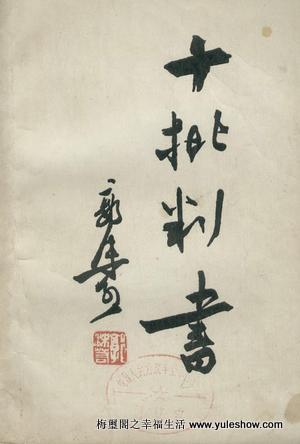 十批判書
郭沫若
梅璽閣之幸福生活 / www.yuleshow.com